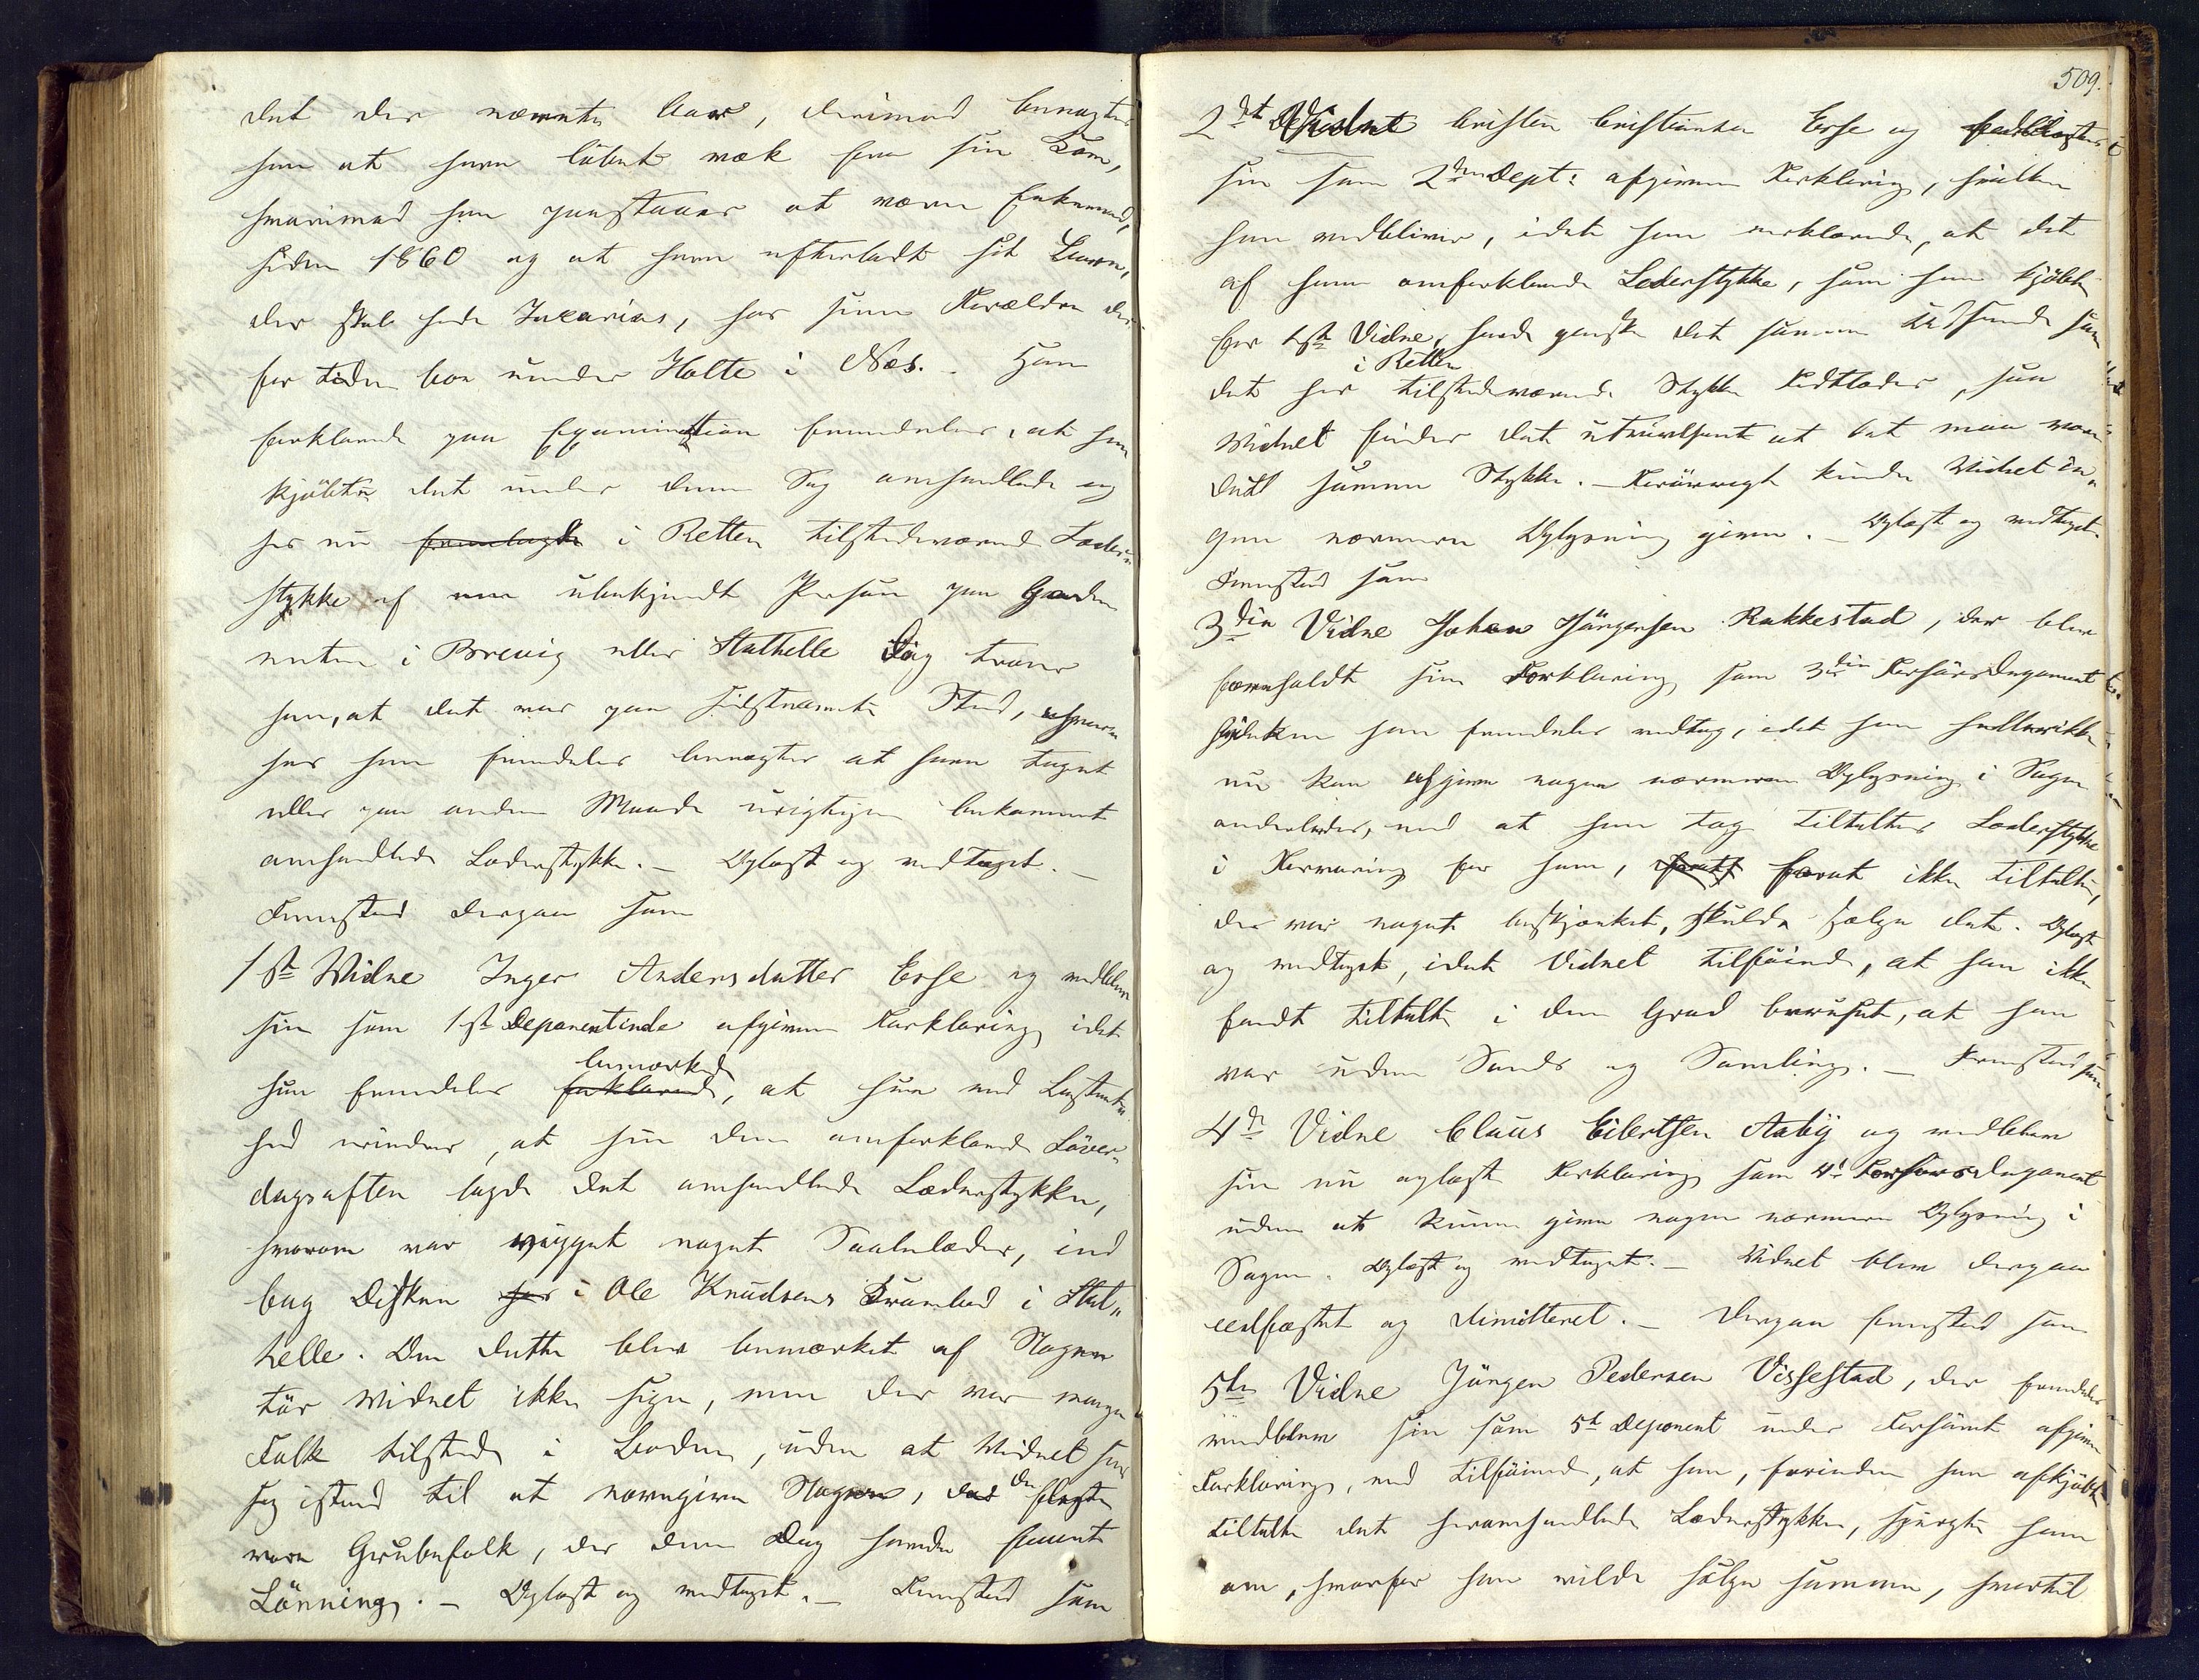 det der nævnte Aar, derimod benægter
han at have løbet væk fra sin Kone,
hvorimod han paastaaer at være Enkemand,
siden 1860 og at have efterladt sit Barn,
der skal hede Zakarias, hos sine Forældre der
for tiden boe under Holte i Næs. – Han
forklarede paa Examination fremdeles, at han
kjøbte det under denne Sag omhandlede og
her nu fremlagte i Retten tilstedeværende Læder-
stykke af een ubekjendt Person paa Gaden
enten i Brevig eller Stathelle Dog troer
han, at det var paa sidstnævnte Sted,
her han fremdeles benægter at have taget
eller paa anden Maade urigtigen bekommet
omhandlede Læderstykke. – Oplæst og vedtaget. –
Fremstod derpaa som
1ste Widne Inger Andersdatter Esse og vedblev
sin som 1ste Deponentinde afgivne Forklaring idet
bemærkede
hun fremdeles forklarede, at hun med Bestemt-
hed erindrer, at hun den omforklarede Løver-
dagsaften lagde det omhandlede Læderstykke,
hvorom var svøbt noget Saalelæder, ind
bag Disken her i Ole Knudsens Krambod i Stat-
helle. Om dette blev bemærket af Nogen
tør Widnet ikke sige, men der var mange
Folk tilstede i Boden, uden at Widnet saae
sig istand til at navngive Nogen, da de fleste
vare Grubefolk, der den Dag havde faaet
Lønning. – Oplæst og vedtaget. – Fremstod som
509.
2det Vidne Cristen Cristiansen Esse og vedblev
sin som 2den Dept: afgivne Forklaring, hvilken
han vedbliver, idet han erklærede, at det
af ham omforklarede Læderstykke, som han kjøbte
for 1ste Vidne, havde ganske det samme Udseende som
i Retten
det her tilstedeværende Stykke Fedtlæder, saa
Widnet finder det utvivlsomt at det maa være
dette samme Stykke. – Forøvrigt kunde Widnet in-
gen nærmere Oplysning give. – Oplæst og vedtaget.
Fremstod som
3die Vidne Johan Jørgensen Rakkestad, der blev
foreholdt sin Forklaring som 3die Forhørsdeponent
hvilken han fremdeles vedtog, idet han hellerikke
nu kan afgive nogen nærmere Oplysning i Sagen
anderledes, end at han tog Tiltaltes Læderstykke
i Forvaring for ham, forat ikke Tiltalte,
der var noget beskjænket, skulde sælge det. Oplæst
og vedtaget, idet Vidnet tilføiede, at han ikke
fandt Tiltalte i den Grad beruset, at han
var uden Sands og Samling. – Fremstod som
4de Vidne Claus Eilertsen Aaby og vedblev
sin nu oplæste Forklaring som 4de Forhørsdeponent
uden at kunne give nogen nærmere Oplysning i
Sagen. Oplæst og vedtaget. – Vidnet blev derpaa
eedfæstet og dimitteret. – Derpaa fremstod som
5te Vidne Jørgen Pedersen Vissestad, der fremdeles
vedblev sin som 5te Deponent under Forhøret afgivne
Forklaring, med Tilføiende, at han, forinden han afkjøbte
Tiltalte det heromhandlede Læderstykke, spurgte ham
om, hvorfor han vilde sælge samme, hvortil